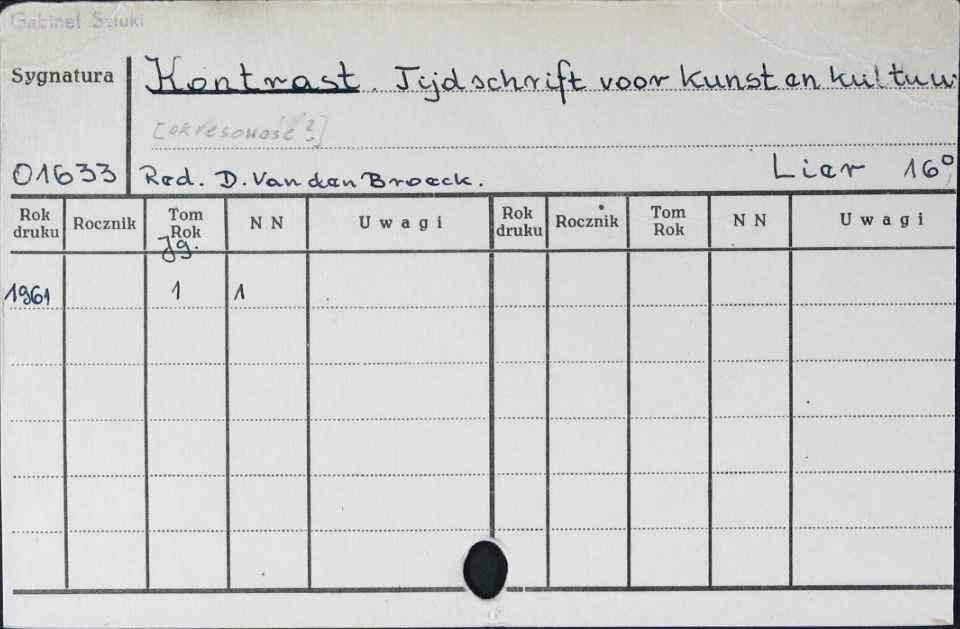 Gabinet Sztuki
Sygnatura
Kontrast. Tijdschrift voor kunst en kultuur
[okresowość?]
01633 Red. D. Van den Broeck. Lier 16°
Rok druku Rocznik Tom Rok Jg. N N Uwagi Rok druku Rocznik Tom Rok N N Uwagi
1961 1 1